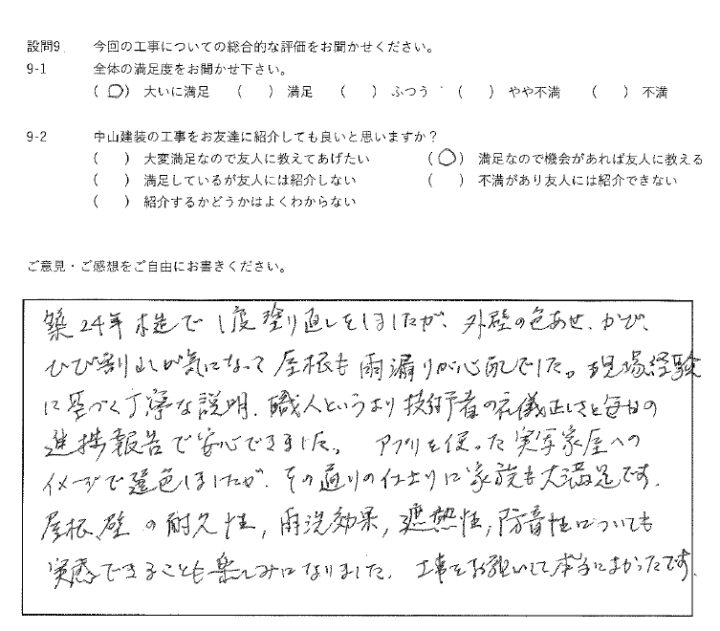 設問9 今回の工事についての総合的な評価をお聞かせください。
9-1 全体の満足度をお聞かせ下さい。
(○) 大いに満足 ( ) 満足 ( ) ふつう ( ) やや不満 ( ) 不満
9-2 中山建装の工事をお友達に紹介しても良いと思いますか？
( ) 大変満足なので友人に教えてあげたい (○) 満足なので機会があれば友人に教える
( ) 満足しているが友人には紹介しない ( ) 不満があり友人には紹介できない
( ) 紹介するかどうかはよくわからない
ご意見・ご感想をご自由にお書きください。
築24年木造で1度塗り直しをしましたが、外壁の色あせ、かび、
ひび割れが気になって屋根も雨漏りが心配でした。現場経験
に基づく丁寧な説明、職人というより技術者の礼儀正しさと毎日の
進捗報告で安心できました。 アプリを使った実写家屋への
イメージで選色しましたが、その通りの仕上りに家族も大満足です。
屋根、壁の耐久性，雨洗効果，遮熱性，防音性についても
実感できることも楽しみになりました。 工事をお願いして本当によかったです。